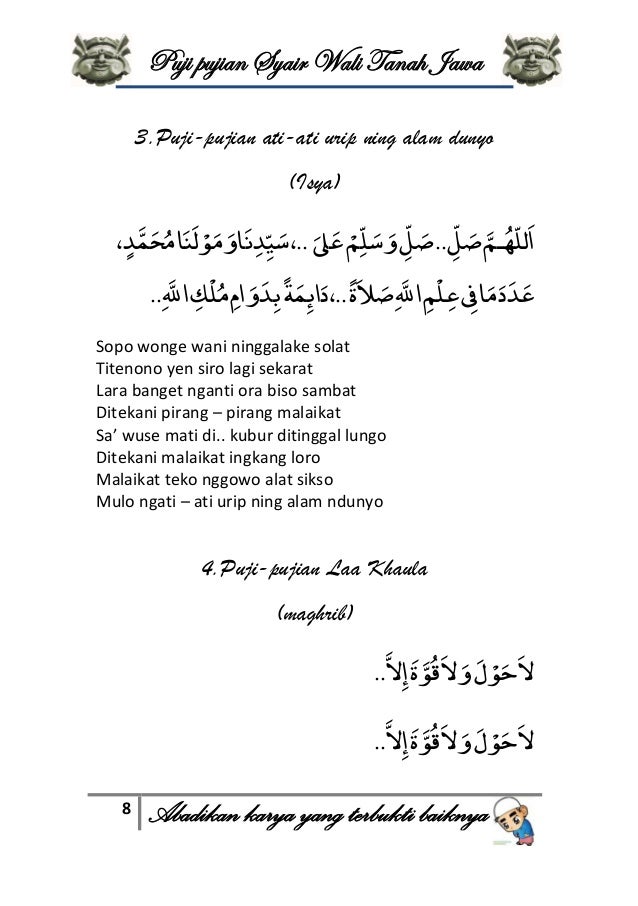 Puji pujian Syair Wali Tanah Jawa
3.Puji-pujian ati-ati urip ning alam dunyo
(Isya)
اَللّٰهُـمَّ صَلِّ..صَلِّ وَسَلِّمْ عَلَى..،سَيِّدِنَاوَمَوْلَنَامُحَمَّدٍ،
عَدَدَمَافِى عِلْمِ اللهِ صَلاَةً..،دَائِمَةً بِدَوَامِ مُلْكِ اللهِ..
Sopo wonge wani ninggalake solat
Titenono yen siro lagi sekarat
Lara banget nganti ora biso sambat
Ditekani pirang – pirang malaikat
Sa’ wuse mati di.. kubur ditinggal lungo
Ditekani malaikat ingkang loro
Malaikat teko nggowo alat sikso
Mulo ngati – ati urip ning alam ndunyo
4.Puji-pujian Laa Khaula
(maghrib)
لاَحَوْلَ وَلاَقُوَّةَ إِلاَّ..
لاَحَوْلَ وَلاَقُوَّةَ إِلاَّ..
8 Abadikan karya yang terbukti baiknya